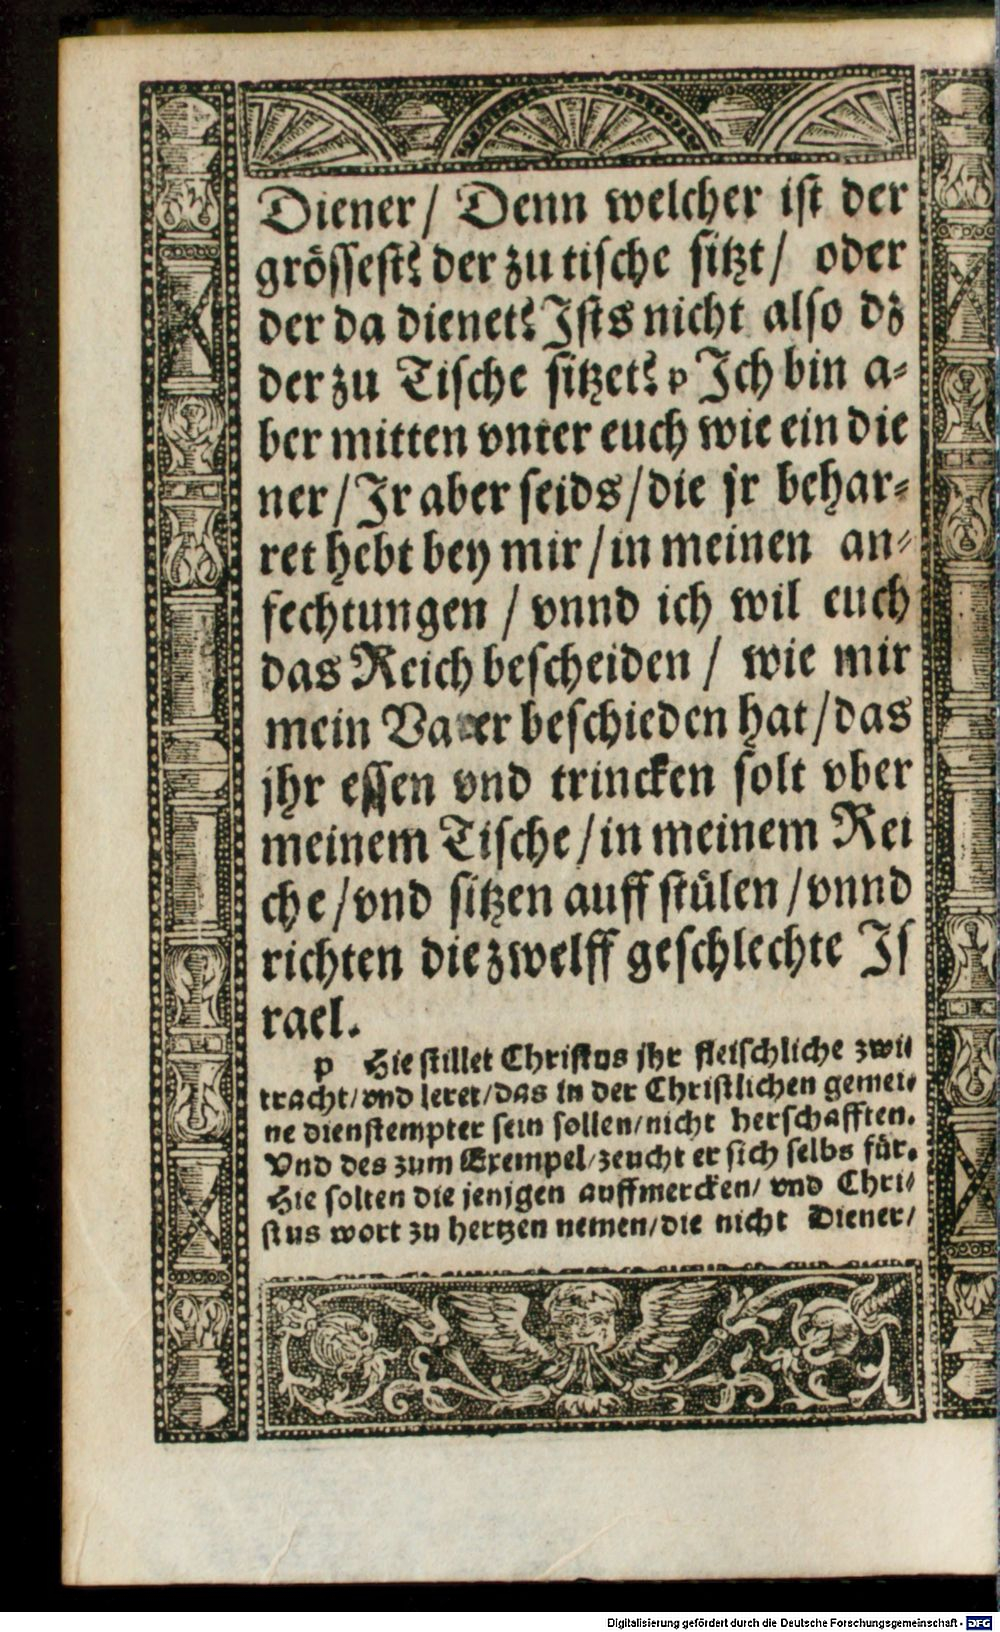 Diener/ Denn welcher ist der
grössest? der zu tische sitzt/ oder
der da dienet? Ists nicht also dz
der zu Tische sitzet? p Ich bin a⸗
ber mitten vnter euch wie ein die
ner/Ir aber seids/die jr behar⸗
ret hebt bey mir/in meinen an⸗
fechtungen/vnnd ich wil euch
das Reich bescheiden/ wie mir
mein Vater beschieden hat/das
jhr essen vnd trincken solt vber
meinem Tische/in meinem Rei
che/vnd sitzen auff stülen/vnnd
richten die zwelff geschlechte Is
rael.
p Hie stillet Christus jhr fleischliche zwi
tracht/vnd leret/das in der Christlichen gemei⸗
ne dienstempter sein sollen/nicht herschafften.
Vnd des zum Exempel/zeucht er sich selbs für.
Hie solten die jenigen auffmercken/ vnd Chri⸗
stus wort zu hertzen nemen/die nicht Diener/
Digitalisierung gefördert durch die Deutsche Forschungsgemeinschaft - DFG